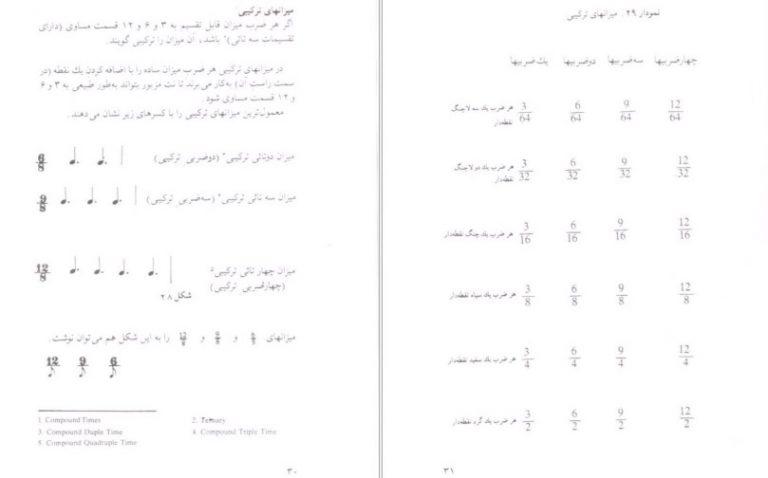 میزانهای ترکیبی
اگر هر ضرب میزان قابل تقسیم به ۳ و ۶ و ۱۲ قسمت مساوی (دارای
تقسیمات سه تائی)² باشد، آن میزان را ترکیبی گویند.
در میزانهای ترکیبی هر ضرب میزان ساده را با اضافه کردن یك نقطه (در
سمت راست آن) بەکار می‌برند تا نت مزبور بتواند به‌طور طبیعی به ۳ و ۶
و ۱۲ قسمت مساوی شود.
معمول‌ترین میزانهای ترکیبی را با کسرهای زیر نشان می‌دهند.
میزان دوتائی ترکیبی³ (دوضربی ترکیبی) 6/8
میزان سه تائی ترکیبی⁴ (سه‌ضربی ترکیبی) 9/8
میزان چهار تائی ترکیبی⁵ 12/8
(چهارضربی ترکیبی)
شکل ۲۸
میزانهای 6/8 و 9/8 و 12/8 را به این شکل هم می‌توان نوشت.
12 9 6
1. Compound Times
2. Ternary
3. Compound Duple Time
4. Compound Triple Time
5. Compound Quadruple Time
۳۰
نمودار ۲۹. میزانهای ترکیبی
چهارضربیها سه‌ضربیها دوضربیها یك‌ضربیها
12/64 9/64 6/64 3/64 هر ضرب یك سه لاچنگ
نقطه‌دار
12/32 9/32 6/32 3/32 هر ضرب یك دو لاچنگ
نقطه‌دار
12/16 9/16 6/16 3/16 هر ضرب یك چنگ نقطه‌دار
12/8 9/8 6/8 3/8 هر ضرب یك سیاه نقطه‌دار
12/4 9/4 6/4 3/4 هر ضرب یك سفید نقطه‌دار
12/2 9/2 6/2 3/2 هر ضرب یك گرد نقطه‌دار
۳۱